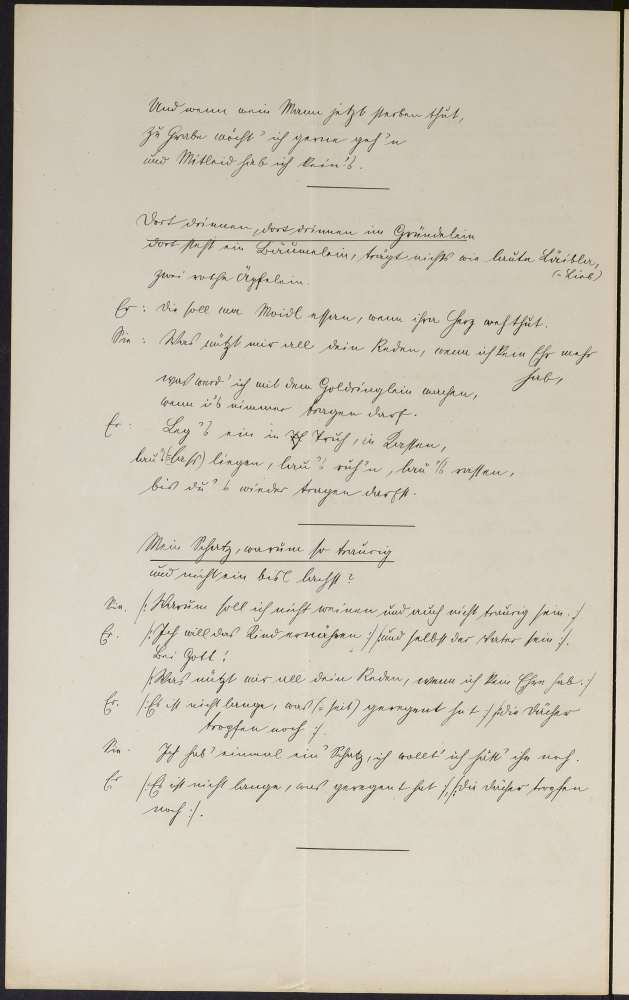 Und wenn mein Mann jetzt sterben thut,
zu Grabe möcht' ich gerne geh'n
und Mitleid hab ich kein's.
Dort drinnen, dort drinnen im Gründelein
dort steht ein Bäumelein, trägt nichts wie laute
(= Lieb)
zwei rothe Äpfelein.
Er: Die soll mein Moidl essen, wenn ihm Herz weh thut.
Sie: Was nützt mir all dein Reden, wenn ich kein Ehr mehr
hab,
was werd' ich mit dem Goldringlein machen,
wenn i's nimmer tragen darf.
Er: Leg's ein in Truh, in Kasten,
lau's (= lass) liegen, lau's ruh'n, lau's rasten,
bis du's wieder tragen darfst.
Mein Schatz, warum so traurig
und nicht ein bisl lachst?
Sie. /: Warum soll ich nicht weinen und auch nicht traurig sein. :/
Er. /: Ich will das Kind ernähren :/ /: und selbst der Vater sein :/.
Bei Gott!
/: Was nützt mir all dein Reden, wenn ich kein Ehre hab. :/
Er. /: Es ist nicht lange, was (= seit) geregnet hat :/ /: die Dächer
tropfen noch :/.
Sie. Ich hab' einmal ein' Schatz, ich wollt' ich hätt' ihn noch.
Er /: Es ist nicht lange, was geregnet hat :/, /: die Dächer tropfen
noch :/.